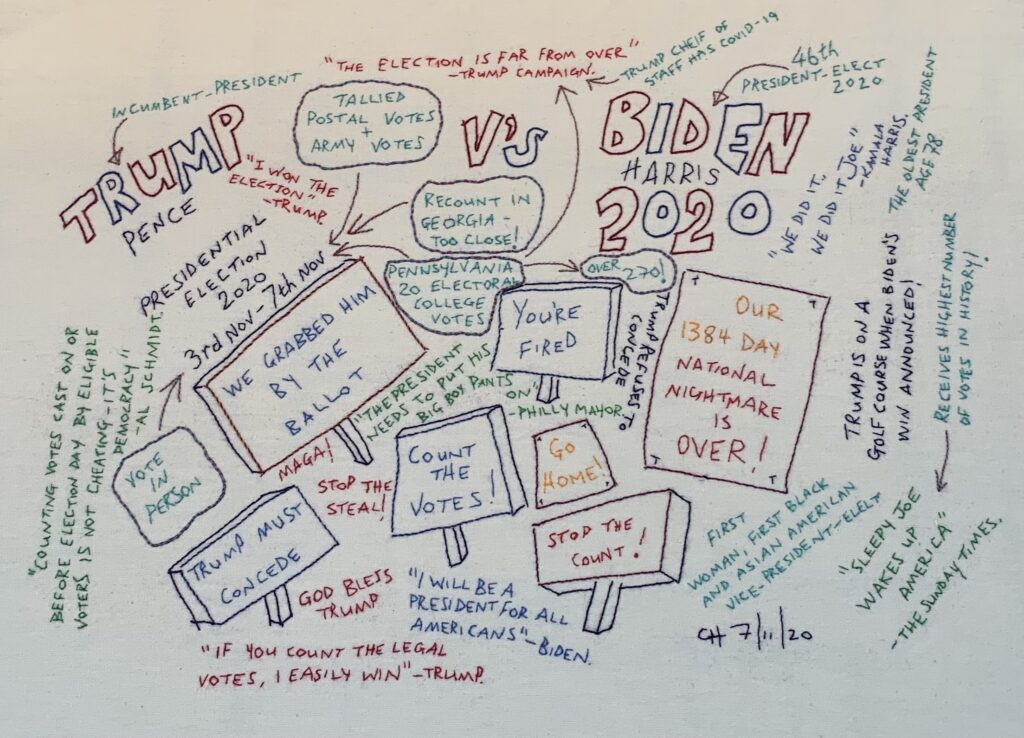 "THE ELECTION IS FAR FROM OVER"
-TRUMP CAMPAIGN.
TRUMP CHEIF OF
STAFF HAS COVID-19
46th
PRESIDENT-ELECT
2020
INCUMBENT-PRESIDENT
TRUMP
PENCE
TALLIED
POSTAL VOTES
+
ARMY VOTES
V's
BIDEN
HARRIS
2020
"I WON THE
ELECTION"
-TRUMP.
RECOUNT IN
GEORGIA -
TOO CLOSE!
"WE DID IT..
WE DID IT JOE"
-KAMALA
HARRIS.
THE OLDEST PRESIDENT
AGE 78
PRESIDENTIAL
ELECTION
2020
3rd NOV-7th NOV
PENNSYLVANIA
20 ELECTORAL
COLLEGE
VOTES
OVER
270!
WE GRABBED HIM
BY THE
BALLOT
YOU'RE
FIRED
TRUMP REFUSES TO
CONCEDE
OUR
1384 DAY
NATIONAL
NIGHTMARE
IS
OVER!
TRUMP IS ON A
GOLF COURSE WHEN BIDEN'S
WIN ANNOUNCED!
RECEIVES HIGHEST NUMBER
OF VOTES IN HISTORY!
"COUNTING VOTES CAST ON OR
BEFORE ELECTION DAY BY ELIGIBLE
VOTERS IS NOT CHEATING-IT'S
DEMOCRACY"
-AL SCHMIDT.
"THE PRESIDENT
NEEDS TO PUT HIS
BIG BOY PANTS
ON"
-PHILLY MAYOR
VOTE
IN
PERSON
MAGA!
STOP THE
STEAL!
COUNT
THE
VOTES!
GO
HOME!
TRUMP MUST
CONCEDE
STOP THE
COUNT!
GOD BLESS
TRUMP
"I WILL BE A
PRESIDENT FOR ALL
AMERICANS"-BIDEN.
FIRST
WOMAN, FIRST BLACK
AND ASIAN AMERICAN
VICE-PRESIDENT-ELELT
"SLEEPY JOE
WAKES UP
AMERICA"
-THE SUNDAY TIMES.
"IF YOU COUNT THE LEGAL
VOTES, I EASILY WIN"-TRUMP.
CH 7/11/20